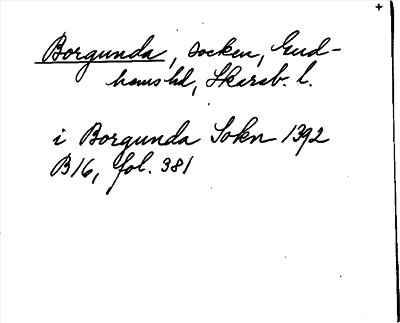 Borgunda, socken, Gud-
hems hd, Skarab. l.
i Borgunda Sokn 1392
B16, fol. 381